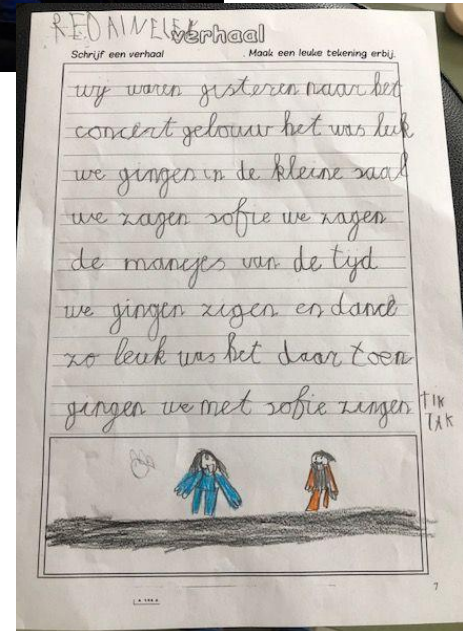 verhaal
Schrijf een verhaal . Maak een leuke tekening erbij.
wij waren gisteren naar het
concert gelouw het was leuk
we gingen in de kleine saal
we zagen sofie we zagen
de manejes van de tijd
we gingen zigen en danse
zo leuk was het daar toen
gingen we met sofie zingen
TIK
TAK
7